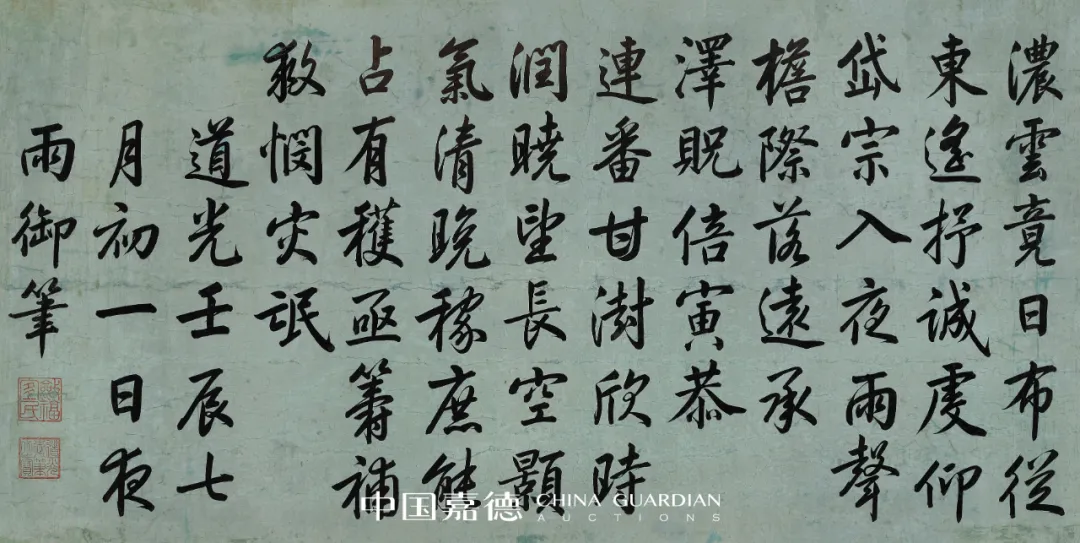 濃雲竟日布從
東遙抒誠虔仰
岱宗入夜雨聲
檐際落遠承
澤貺倍寅恭
連番甘澍欣時
潤曉望長空顥
氣清晚稼庶能
占有穫亟籌補
救憫灾氓
道光壬辰七
月初一日夜
雨御筆
中国嘉德 CHINA GUARDIAN
AUCTIONS